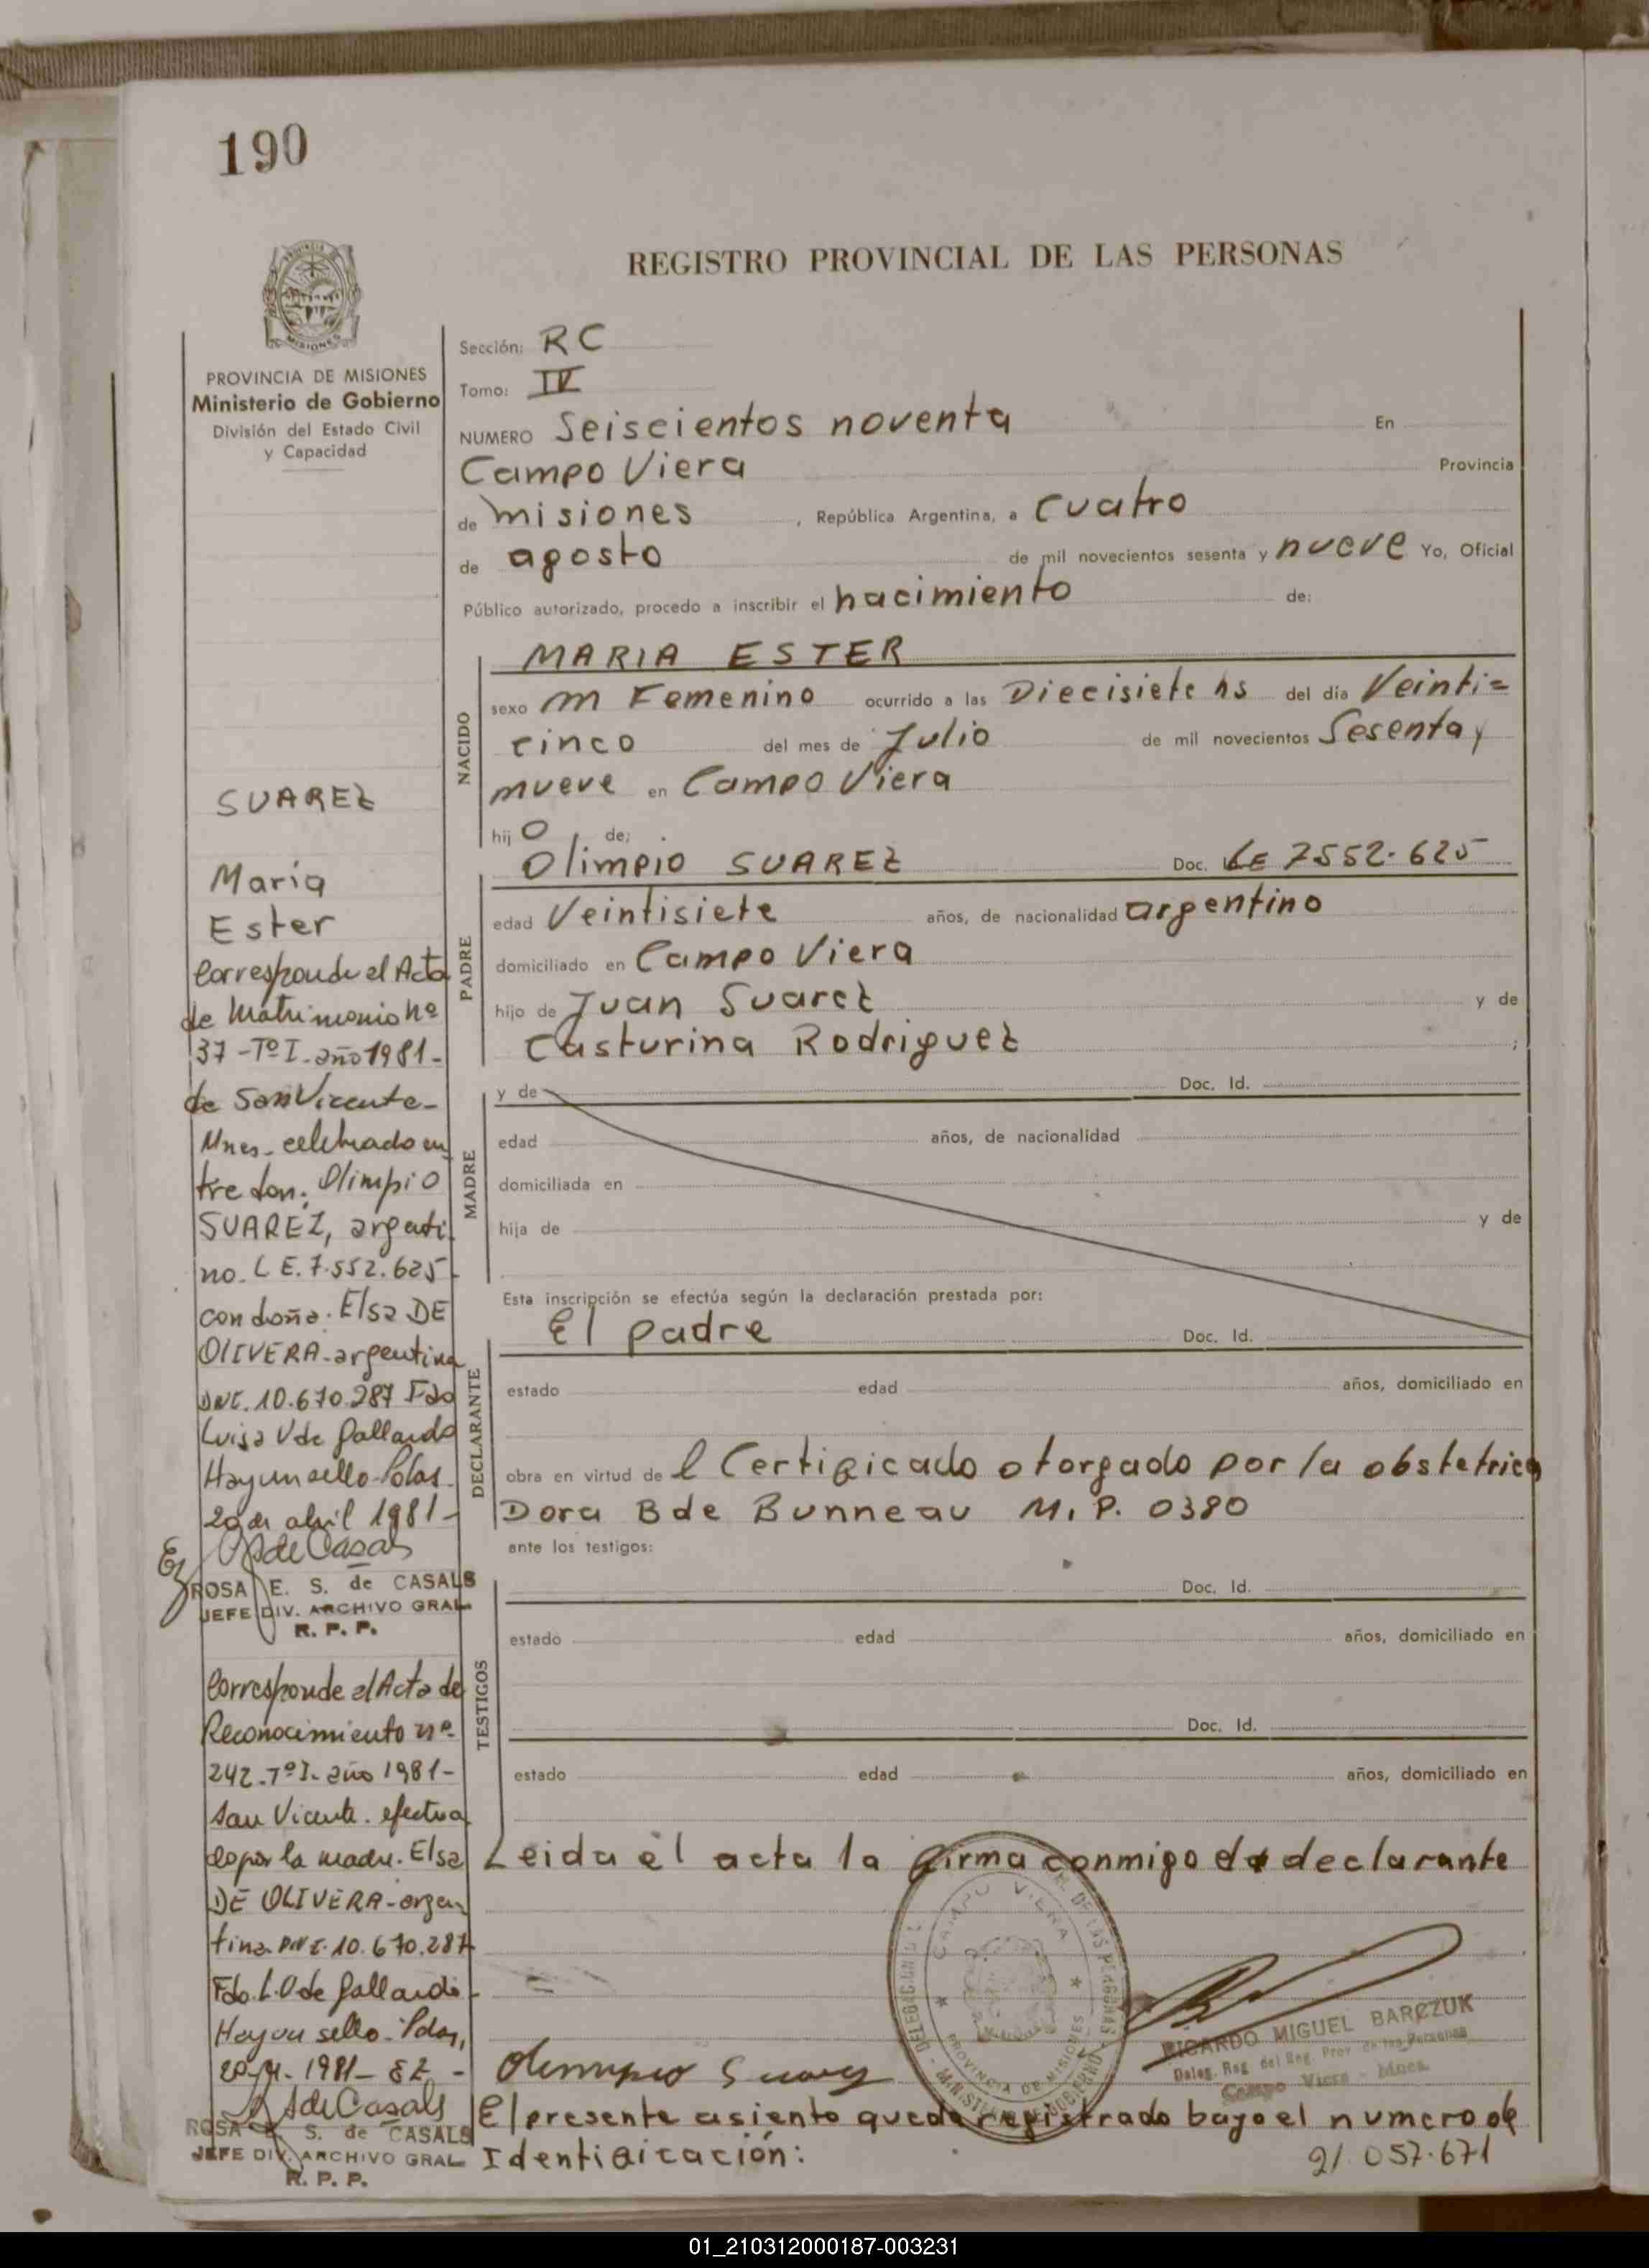 190
REGISTRO PROVINCIAL DE LAS PERSONAS
PROVINCIA DE MISIONES
Ministerio de Gobierno
División del Estado Civil
y Capacidad
Sección: RC
Tomo: IV
NUMERO Seiscientos noventa En
Campo Viera Provincia
de misiones, República Argentina, a cuatro
de agosto de mil novecientos sesenta y nueve Yo, Oficial
Público autorizado, procedo a inscribir el nacimiento de:
NACIDO
MARIA ESTER
sexo m Femenino ocurrido a las Diecisiete hs del día Veinti=
cinco del mes de Julio de mil novecientos Sesenta y
nueve en Campo Viera
hijo de;
PADRE
Olimpio SUAREZ Doc. LE 7552.625
edad Veintisiete años, de nacionalidad argentino
domiciliado en Campo Viera
hijo de Juan Suarez y de
Casturina Rodriguez ;
MADRE
y de Doc. Id.
edad años, de nacionalidad
domiciliada en
hija de y de
Esta inscripción se efectúa según la declaración prestada por:
DECLARANTE
El padre Doc. Id.
estado edad años, domiciliado en
obra en virtud de l Certificado otorgado por la obstetrica
Dora B de Bunneau M.P. 0380
ante los testigos:
TESTIGOS
Doc. Id.
estado edad años, domiciliado en
Doc. Id.
estado edad años, domiciliado en
Leida el acta la firma conmigo el declarante
Olimpio Suarez
RICARDO MIGUEL BARCZUK
Deleg. Reg. del Reg. Prov. de las Personas
Campo Viera - Mnes.
CAMPO VIERA
PROVINCIA DE MISIONES
El presente asiento queda registrado bajo el numero de
Identificación: 21.057.671
SUAREZ
Maria
Ester
Corresponde el Acta
de Matrimonio nº
37-Tº I-año 1981-
de San Vicente-
Mnes-celebrado en
tre don: Olimpio
SUAREZ, argenti
no-L E. 7.552.625
con doña: Elsa DE
OLIVERA-argentina
DNI. 10.670.287 Fdo
Luisa V de Gallardo
Hay un sello-Pdas.
20 de abril 1981-
ROSA E. S. de CASALS
JEFE DIV. ARCHIVO GRAL.
R. P. P.
Corresponde al Acta de
Reconocimiento nº
242-Tº I-año 1981-
San Vicente. efectua
do por la madre. Elsa
DE OLIVERA-argen
tina DNI. 10.670.287
Fdo. L.V de Gallardo
Hay un sello-Pdas,
1981-
ROSA E. S. de CASALS
JEFE DIV. ARCHIVO GRAL
R. P. P.
01_210312000187-003231